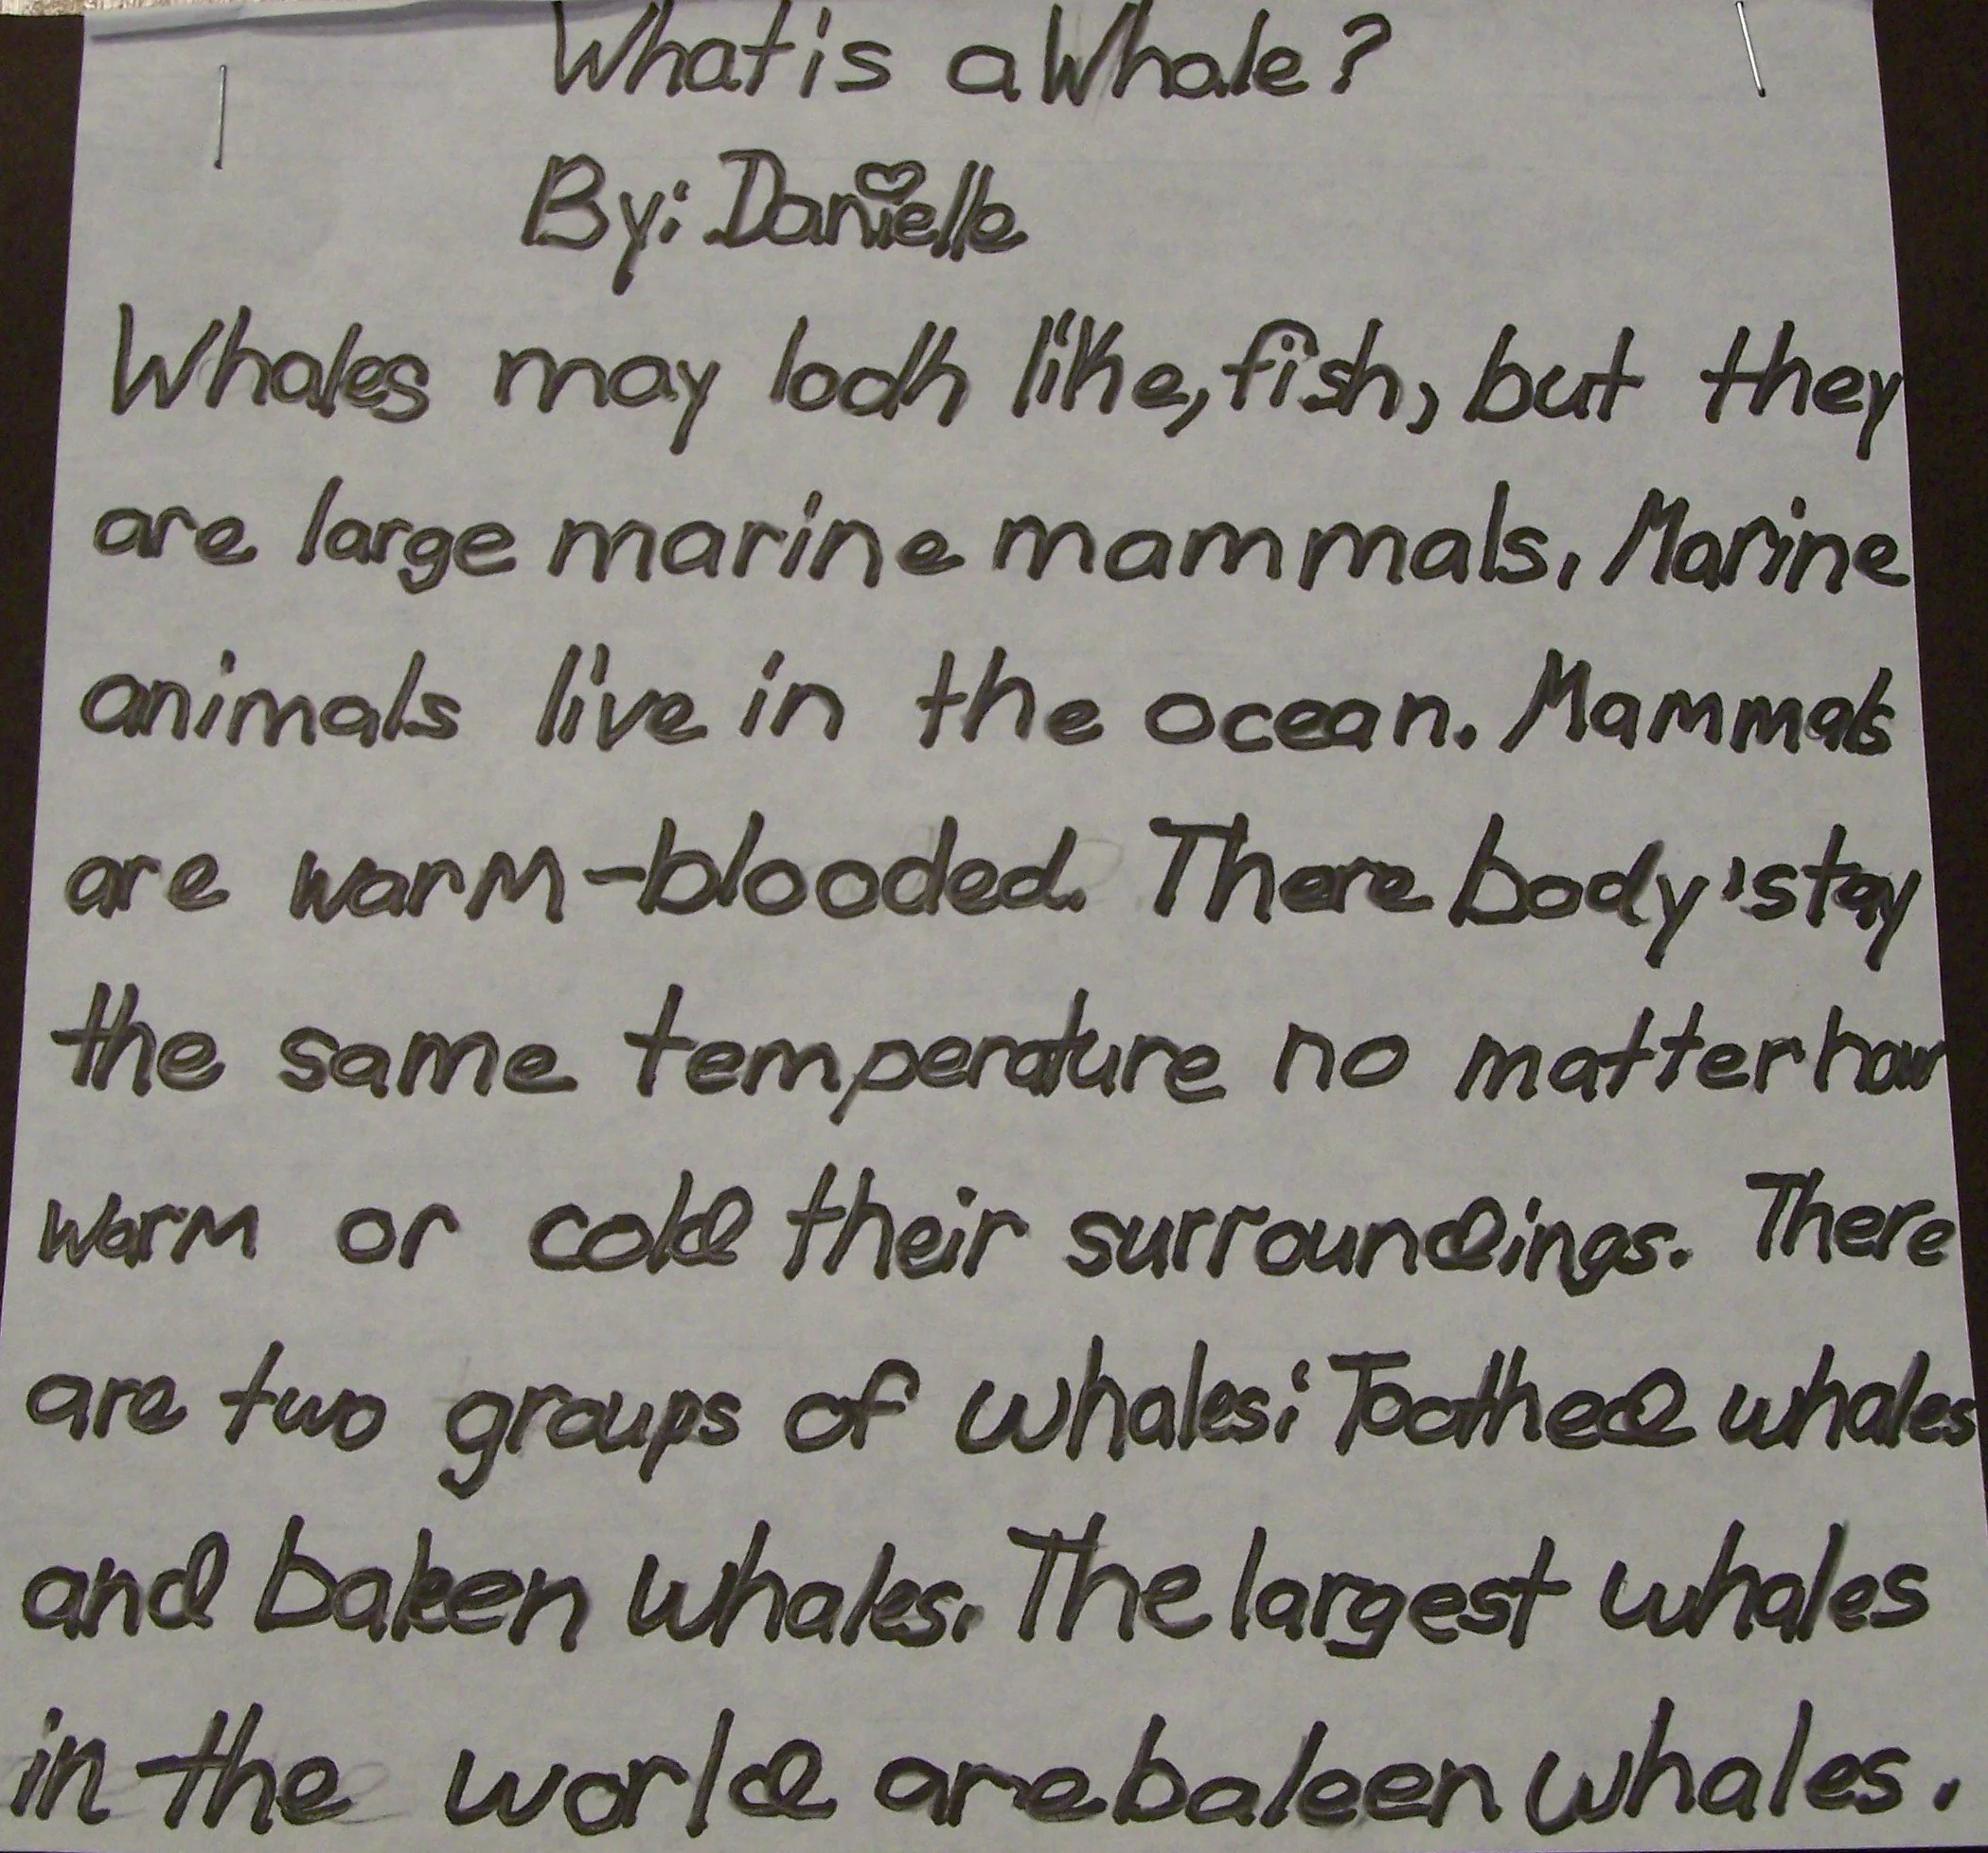 What is a Whale?
By: Danielle
Whales may look like, fish, but they
are large marine mammals. Marine
animals live in the ocean. Mammals
are warm-blooded. There body's stay
the same temperature no matter how
warm or cold their surroundings. There
are two groups of whales: Toothed whales
and baleen whales. The largest whales
in the world are baleen whales.